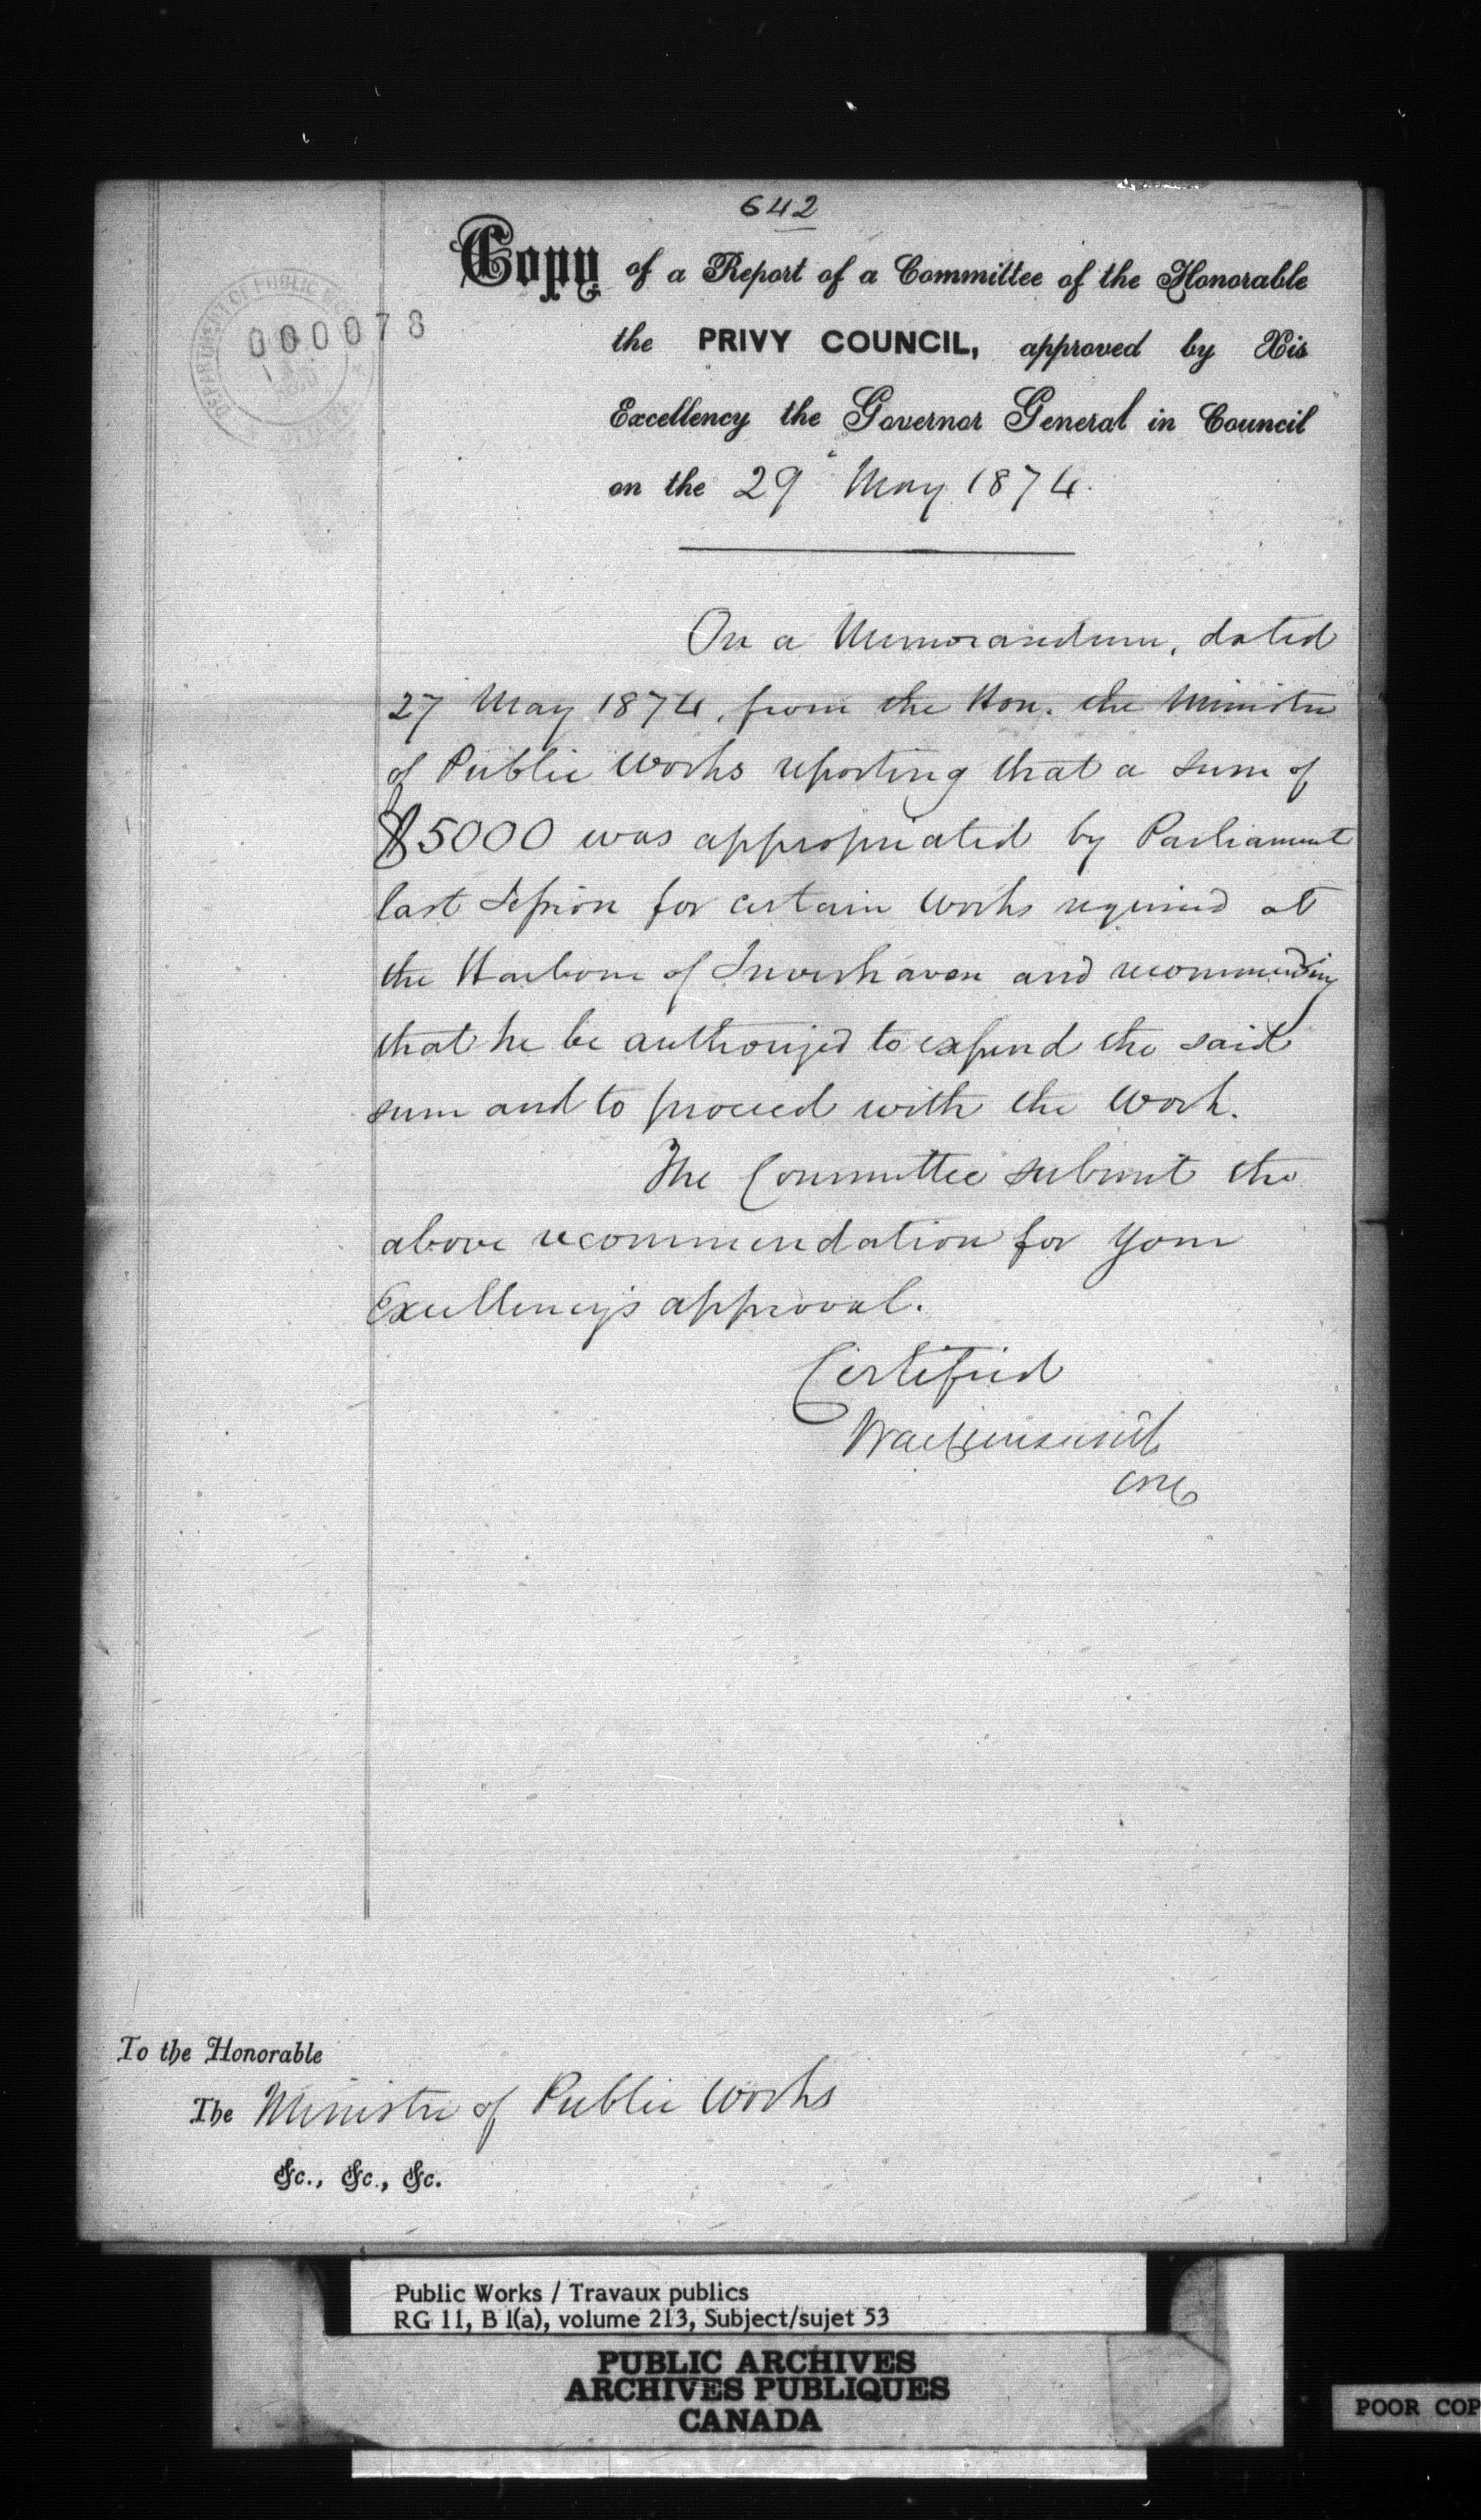 642
Copy of a Report of a Committee of the Honorable
the PRIVY COUNCIL, approved by His
Excellency the Governor General in Council
on the 29 May 1874.
DEPARTMENT OF PUBLIC
000078
On a Memorandum, dated
27 May 1874, from the Hon. the Minister
of Public Works reporting that a sum of
$5000 was appropriated by Parliament
last Session for certain works required at
the Harbour of Inverhaven and recommending
that he be authorized to expend the said
sum and to proceed with the work.
The Committee submit the
above recommendation for Your
Excellency's approval.
Certified
To the Honorable
The Minister of Public Works
&c., &c., &c.
Public Works / Travaux publics
RG 11, B 1(a), volume 213, Subject/sujet 53
PUBLIC ARCHIVES
ARCHIVES PUBLIQUES
CANADA
POOR COP